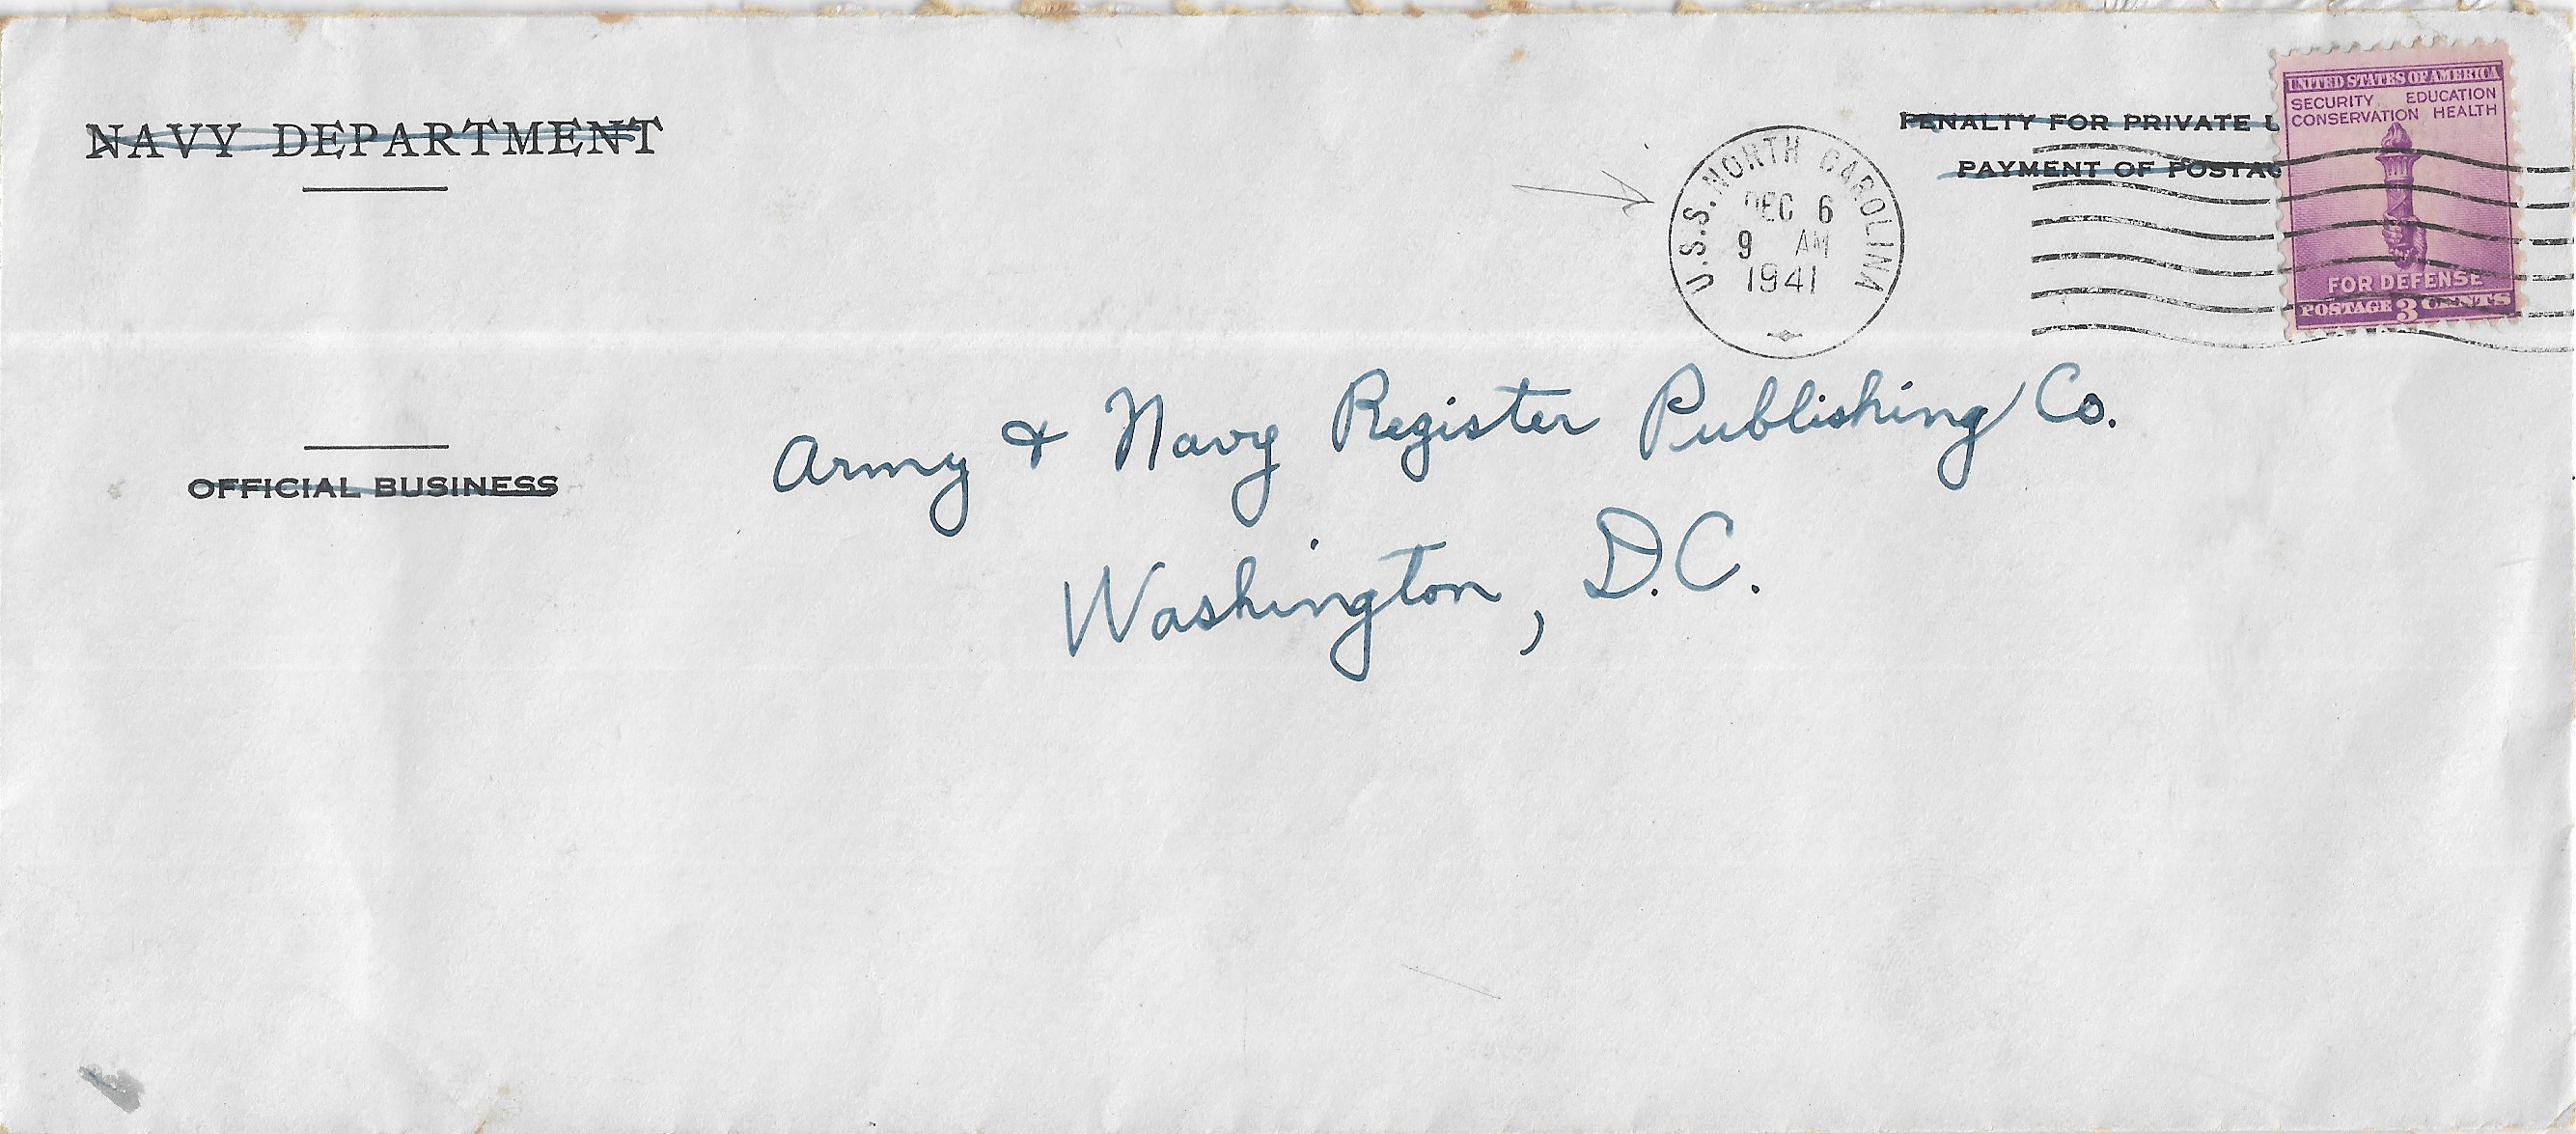 NAVY DEPARTMENT
PENALTY FOR PRIVATE
PAYMENT OF
U.S.S. NORTH CAROLINA
DEC 6
9 AM
1941
UNITED STATES OF AMERICA
SECURITY EDUCATION
CONSERVATION HEALTH
FOR DEFENSE
POSTAGE 3 CENTS
OFFICIAL BUSINESS
Army & Navy Register Publishing Co.
Washington, D.C.